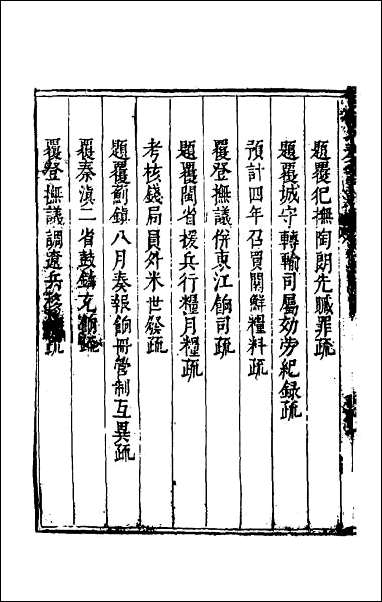 題覆犯撫陶朗先贓罪疏
題覆城守轉輸司屬効勞紀録疏
預計四年召買關鮮糧料疏
覆登撫議併東江餉司疏
題覆閩省援兵行糧月糧疏
考核錢局員外米世發疏
題覆薊鎮八月奏報餉冊管制互異疏
覆秦滇二省鼓鑄充餉疏
覆登撫議調遼兵疏